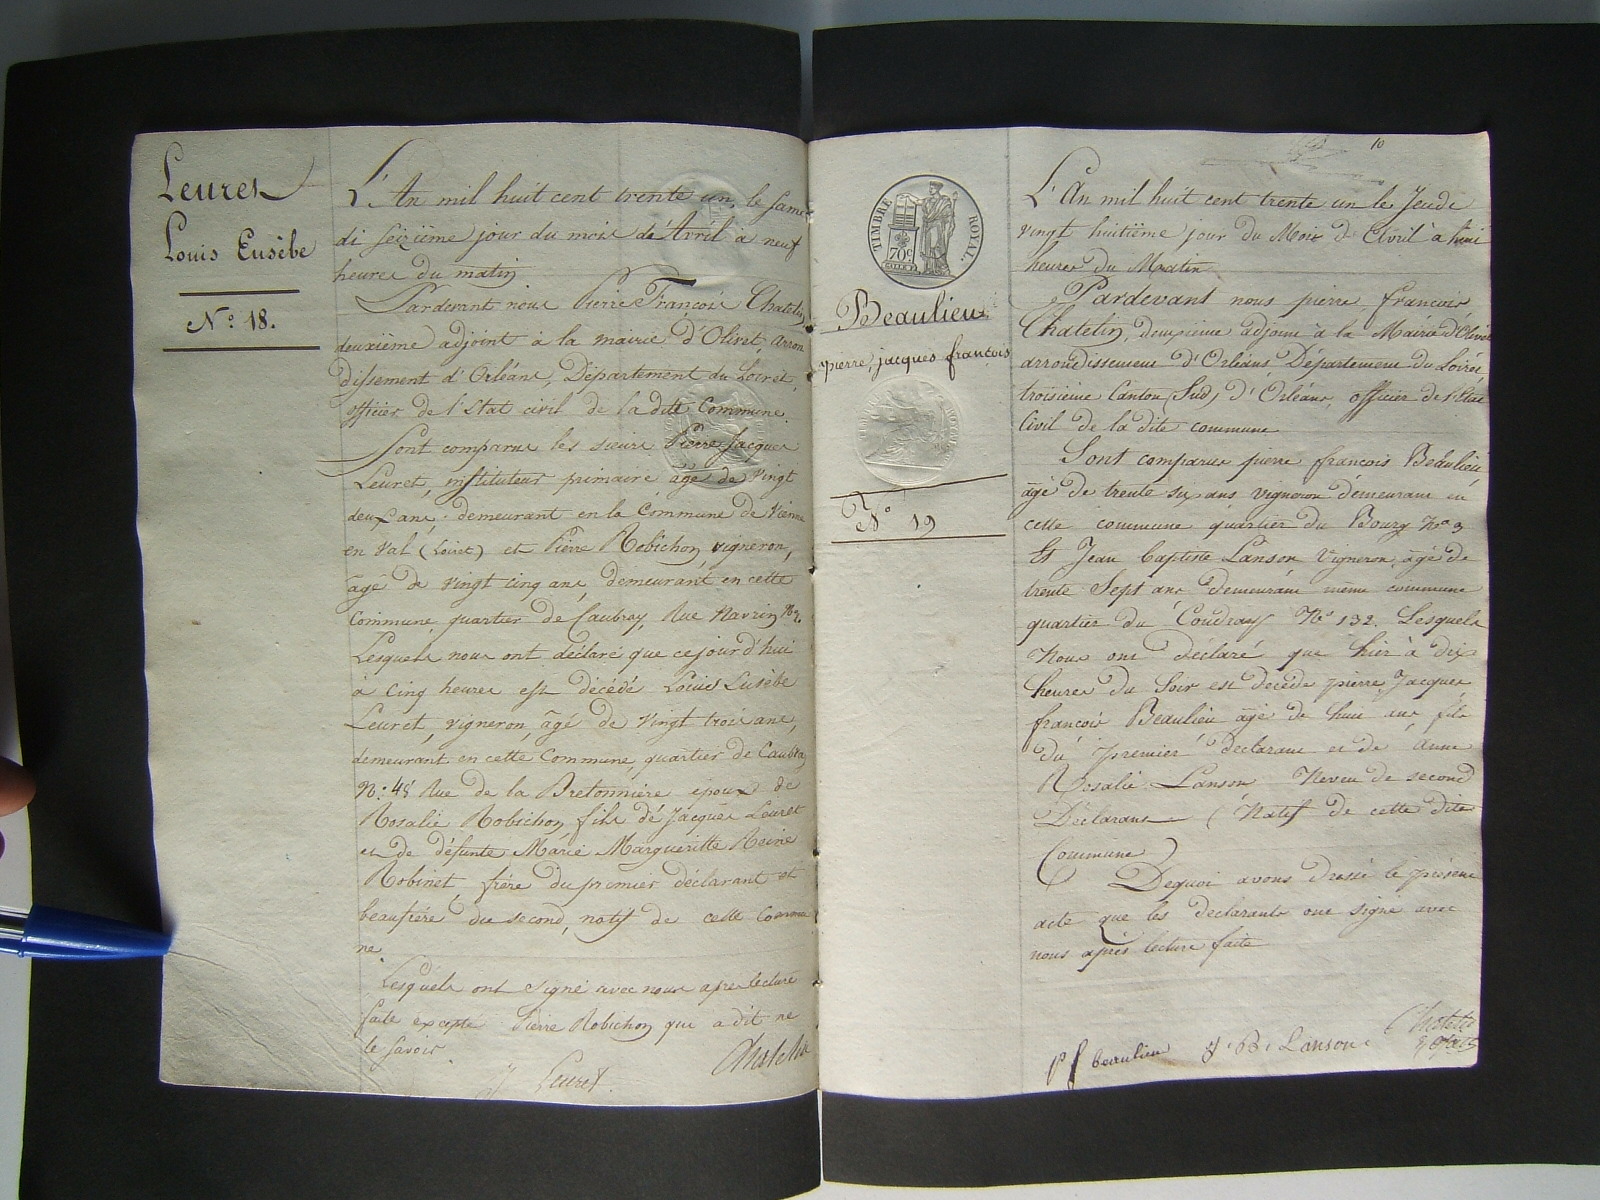 Leuret
Louis Eusèbe
No. 18.
L'An mil huit cent trente un, le same
di seizième jour du mois de Avril à neuf
heures du matin
Pardevant nous Pierre François Chatelin,
deuxième adjoint à la mairie d'Olivet, arron
dissement d'Orléans, Département du Loiret,
officier de l'Etat civil de la dite Commune
Sont comparus les sieurs Pierre Jacques
Leuret, instituteur primaire âgé de vingt
deux ans, demeurant en la Commune de Vienne
en Val (Loiret) et Pierre Robichon, vigneron,
âgé de vingt cinq ans, demeurant en cette
Commune, quartier de Caubray, Rue
Lesquels nous ont déclaré que cejourd'hui
à cinq heures est décédé Louis Eusèbe
Leuret, vigneron, âgé de vingt trois ans,
demeurant en cette Commune, quartier de Caubray
No. 48 Rue de la Bretonnière époux de
Rosalie Robichon, fils de Jacques Leuret
et de défunte Marie Margueritte Reine
Robinet, frère du premier déclarant et
beaufrère du second, natif de cette Commu
ne.
Lesquels ont signé avec nous après lecture
faite excepté Pierre Robichon qui a dit ne
le savoir.
J Leuret Chatelin
10
TIMBRE ROYAL.
70c
Beaulieu
pierre, jacques francois
No 19
L'An mil huit cent trente un le Jeudi
vingt huitième jour du Mois d'Avril à huit
heures du Matin
Pardevant nous pierre, francois
Chatelin, deuxième adjoint à la Mairie d'Olivet
arrondissement d'Orléans, Département du Loiret
troisième Canton (Sud) d'Orléans, officier de l'Etat
Civil de la dite commune
Sont comparus pierre françois Beaulieu
âgé de trente six ans vigneron demeurant en
cette commune quartier du Bourg No 3
Et Jean baptiste Lanson Vigneron, âgé de
trente Sept ans demeurant même commune
quartier du Coudray No 132. Lesquels
Nous ont déclaré que hier à dix
heures du Soir est décédé pierre, Jacques
françois Beaulieu âgé de huit ans fils
du premier déclarant et de Anne
Rosalie Lanson Neveu de second
Déclarant (Natif de cette dite
Commune)
Dequoi avons dressé le présent
acte que les déclarants ont signé avec
nous après lecture faite
Chatelin
p f beaulieu J. B. Lanson